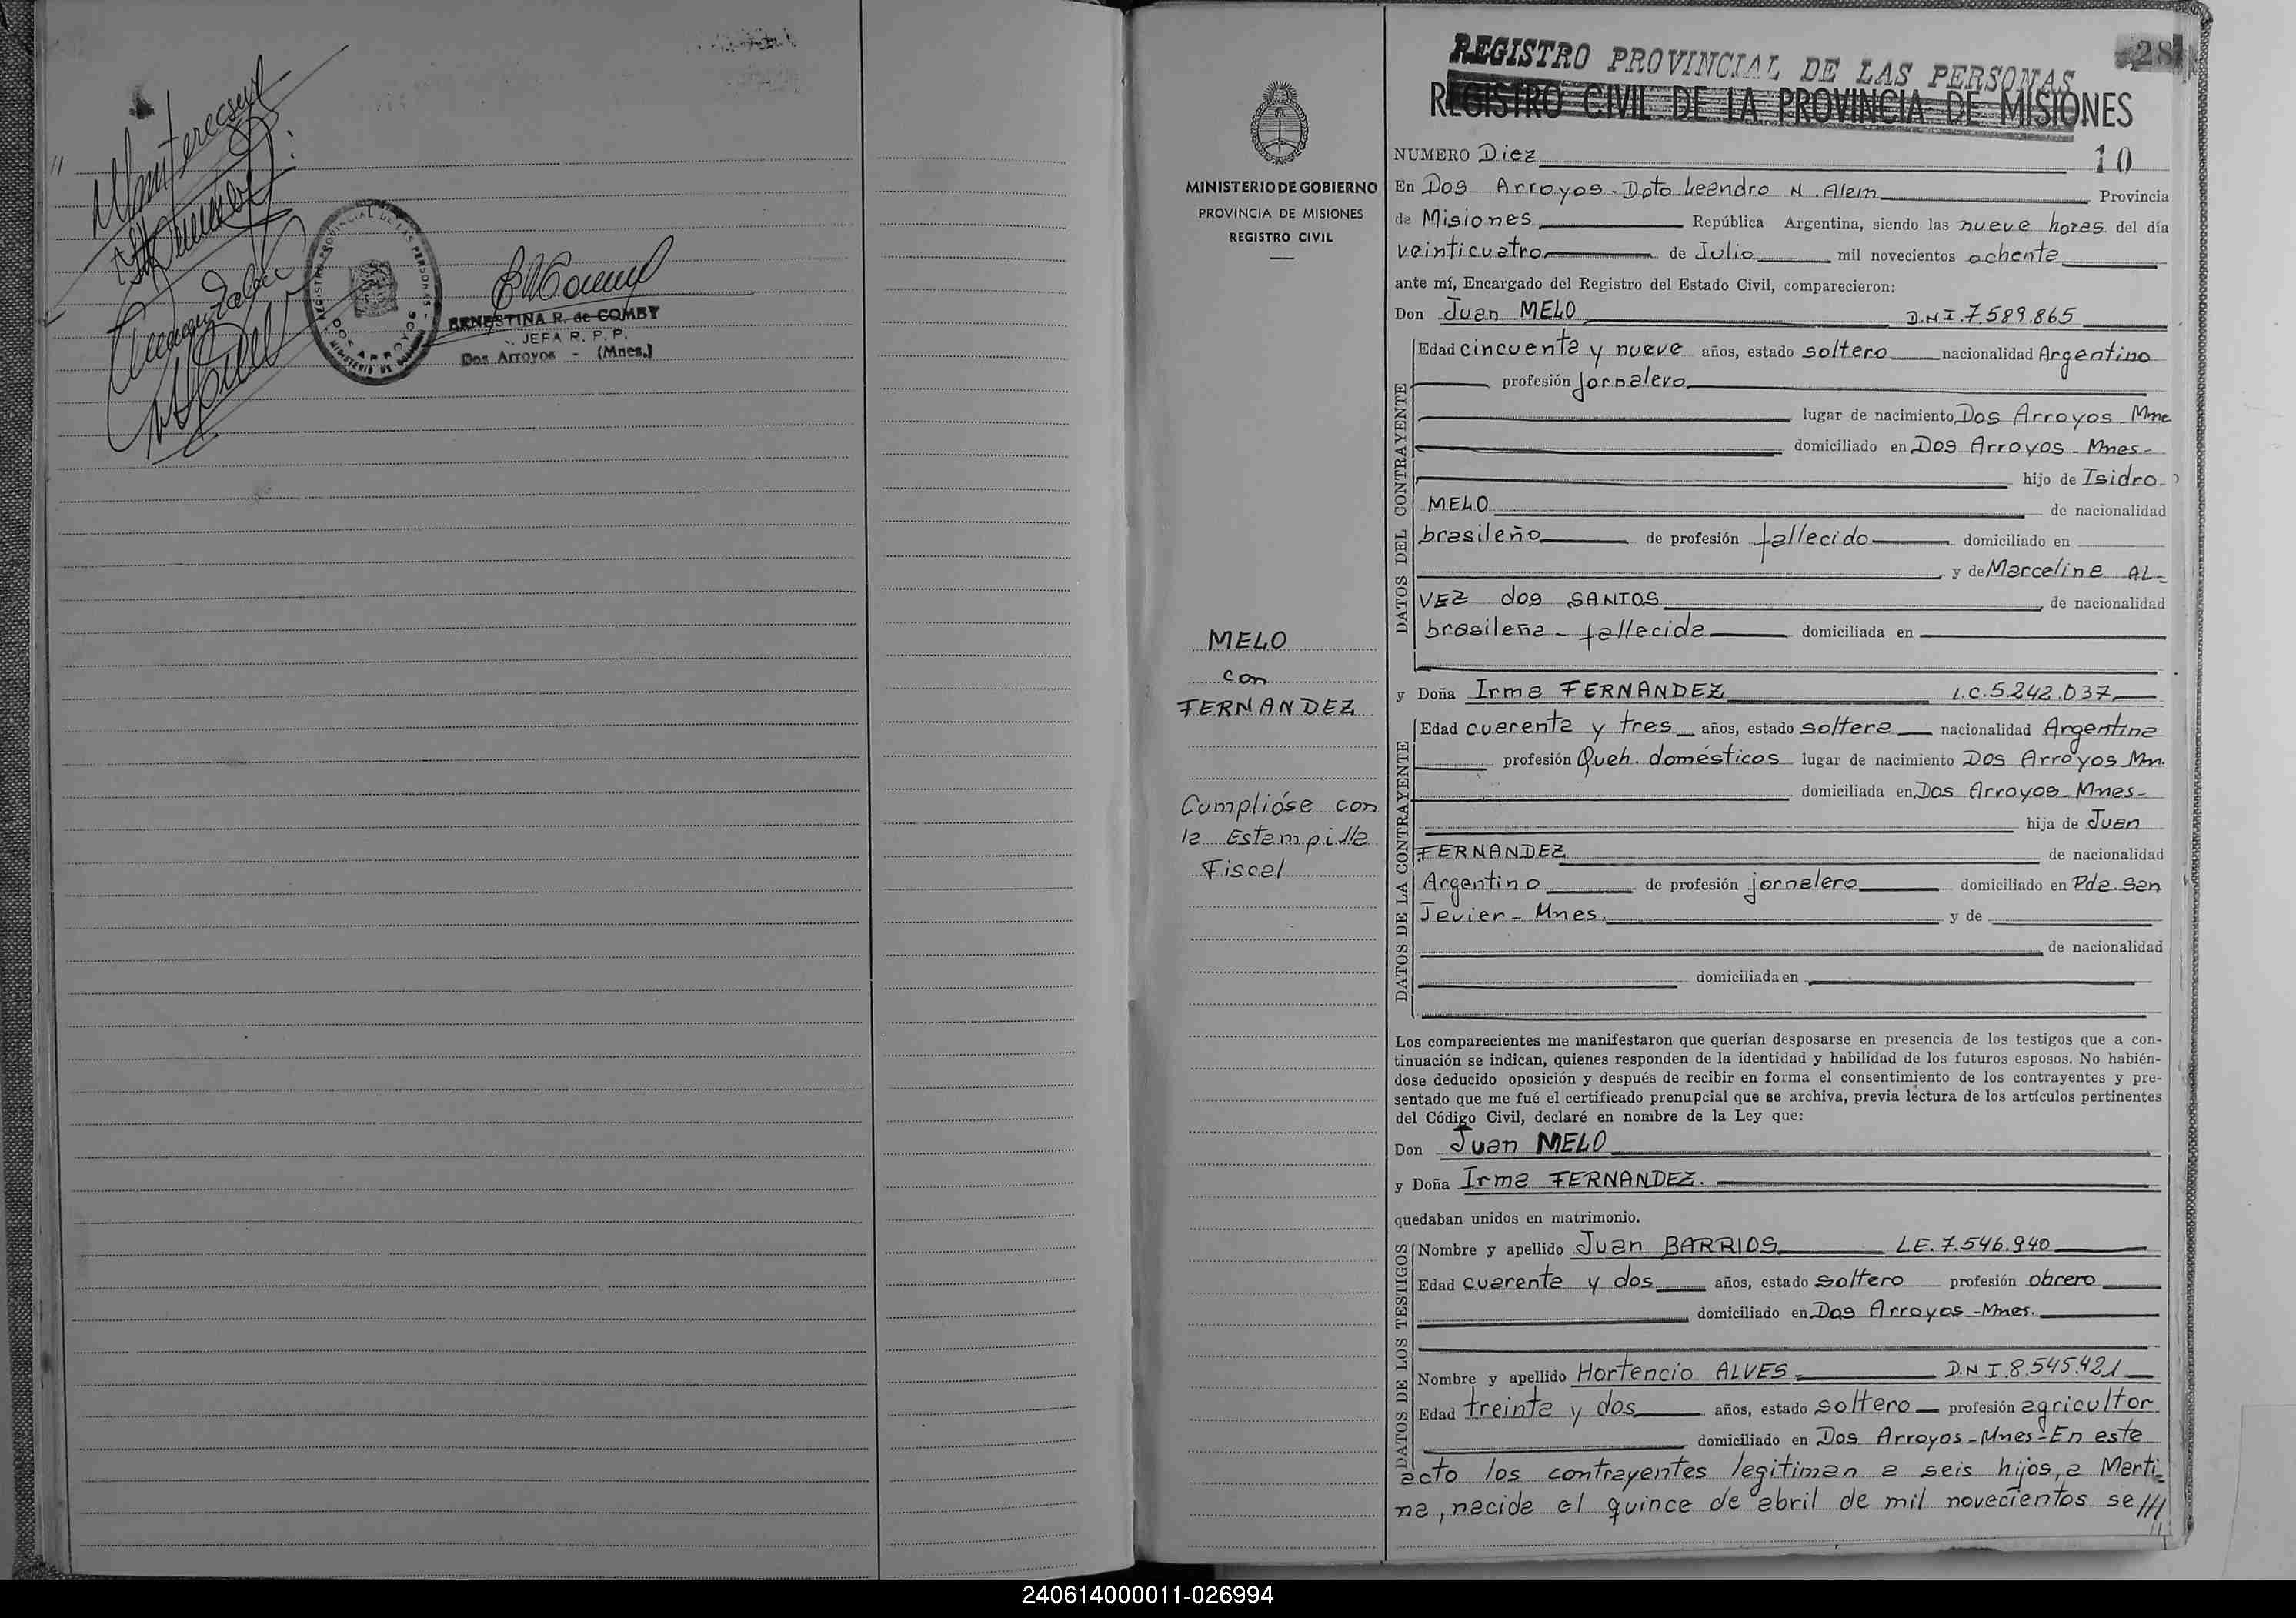 ERNESTINA R. de COMBY
JEFA R. P. P.
Dos Arroyos - (Mnes.)
28
REGISTRO PROVINCIAL DE LAS PERSONAS
REGISTRO CIVIL DE LA PROVINCIA DE MISIONES
MINISTERIO DE GOBIERNO
PROVINCIA DE MISIONES
REGISTRO CIVIL
MELO
con
FERNANDEZ
Cumplióse con
la Estampilla
Fiscal
NUMERO Diez 10
En Dos Arroyos - Dpto Leandro N. Alem Provincia
de Misiones República Argentina, siendo las nueve horas del día
veinticuatro de Julio mil novecientos ochenta
ante mí, Encargado del Registro del Estado Civil, comparecieron:
Don Juan MELO D.N.I. 7.589.865
DATOS DEL CONTRAYENTE
Edad cincuenta y nueve años, estado soltero nacionalidad Argentino
profesión jornalero
lugar de nacimiento Dos Arroyos Mne
domiciliado en Dos Arroyos - Mnes -
hijo de Isidro
MELO de nacionalidad
brasileño de profesión fallecido domiciliado en
y de Marcelina AL-
VEZ dos SANTOS de nacionalidad
brasileña - fallecida domiciliada en
y Doña Irma FERNANDEZ L.C. 5.242.037
DATOS DE LA CONTRAYENTE
Edad cuarenta y tres años, estado soltera nacionalidad Argentina
profesión Queh. domésticos lugar de nacimiento Dos Arroyos Mn.
domiciliada en Dos Arroyos - Mnes -
hija de Juan
FERNANDEZ de nacionalidad
Argentino de profesión jornalero domiciliado en Pda. San
Javier - Mnes. y de
de nacionalidad
domiciliada en
Los comparecientes me manifestaron que querían desposarse en presencia de los testigos que a con-
tinuación se indican, quienes responden de la identidad y habilidad de los futuros esposos. No habién-
dose deducido oposición y después de recibir en forma el consentimiento de los contrayentes y pre-
sentado que me fué el certificado prenupcial que se archiva, previa lectura de los artículos pertinentes
del Código Civil, declaré en nombre de la Ley que:
Don Juan MELO
y Doña Irma FERNANDEZ.
quedaban unidos en matrimonio.
DATOS DE LOS TESTIGOS
Nombre y apellido Juan BARRIOS L.E. 7.546.940
Edad cuarenta y dos años, estado soltero profesión obrero
domiciliado en Dos Arroyos - Mnes.
Nombre y apellido Hortencio ALVES - D.N.I. 8.545.421
Edad treinta y dos años, estado soltero profesión agricultor
domiciliado en Dos Arroyos - Mnes - En este
acto los contrayentes legitiman a seis hijos, a Marti-
na, nacida el quince de abril de mil novecientos se///
240614000011-026994